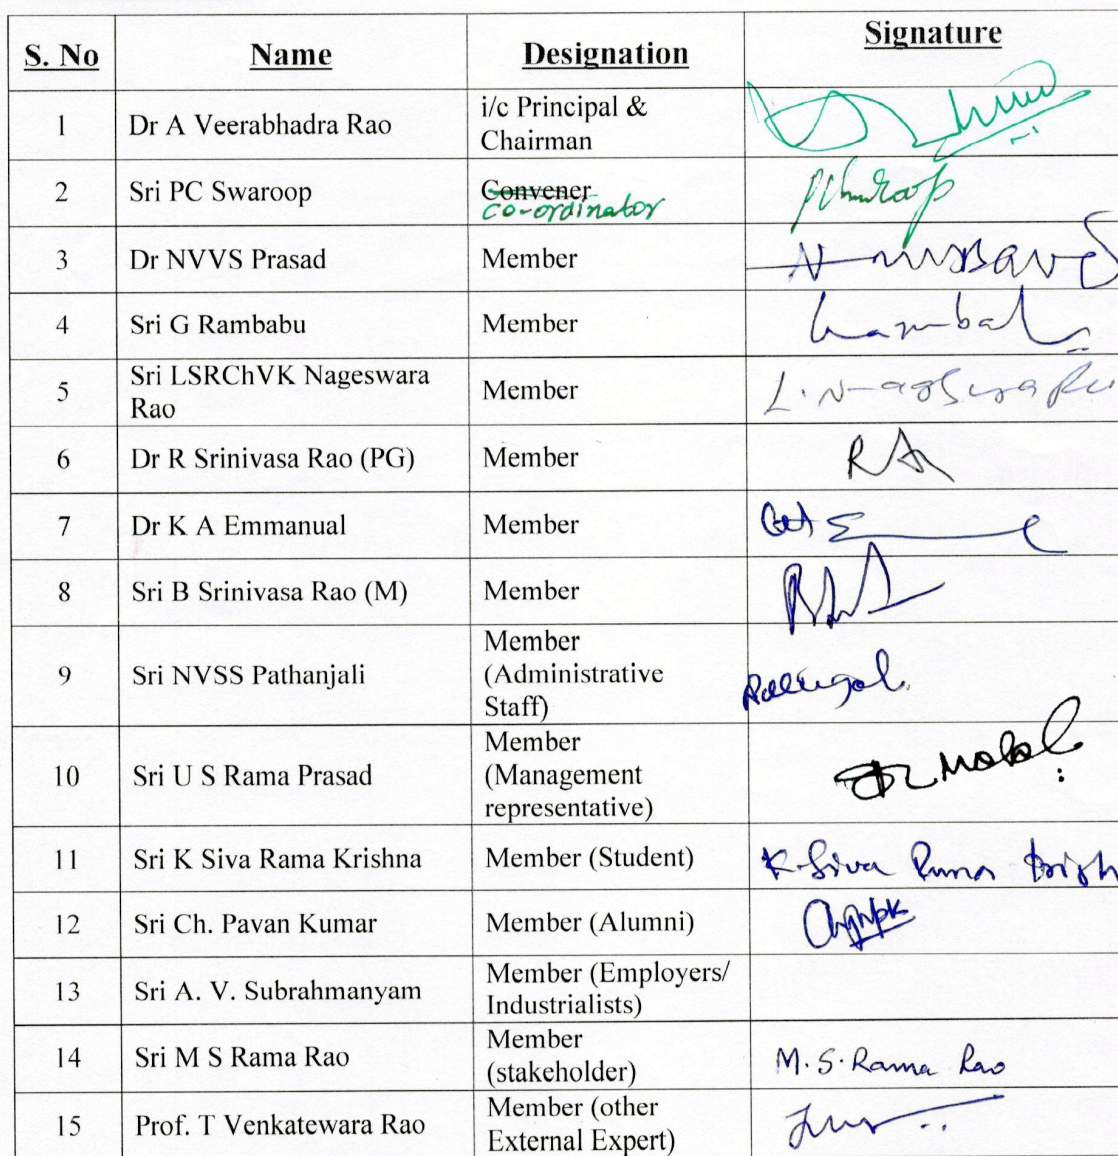 S. No Name Designation Signature
1 Dr A Veerabhadra Rao i/c Principal &
Chairman
2 Sri PC Swaroop Convener
co-ordinator
3 Dr NVVS Prasad Member
4 Sri G Rambabu Member
5 Sri LSRChVK Nageswara
Rao Member
6 Dr R Srinivasa Rao (PG) Member
7 Dr K A Emmanual Member
8 Sri B Srinivasa Rao (M) Member
9 Sri NVSS Pathanjali Member
(Administrative
Staff)
10 Sri U S Rama Prasad Member
(Management
representative)
11 Sri K Siva Rama Krishna Member (Student) K. Siva Rama Krish
12 Sri Ch. Pavan Kumar Member (Alumni)
13 Sri A. V. Subrahmanyam Member (Employers/
Industrialists)
14 Sri M S Rama Rao Member
(stakeholder) M. S. Rama Rao
15 Prof. T Venkatewara Rao Member (other
External Expert)